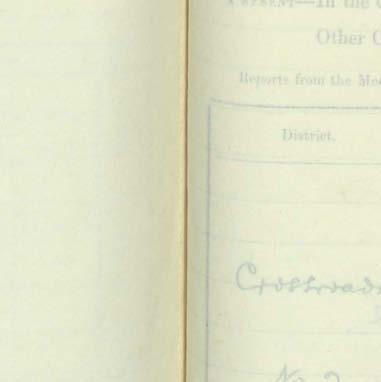 PRESENT—In the
Other
Reports from the
District.
Crossroads
No 2